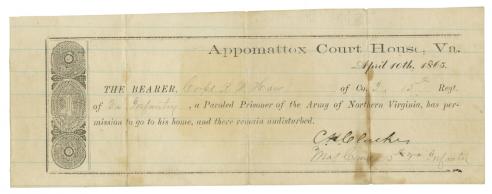 Appomattox Court House, Va.
April 10th, 1865.
THE BEARER, Corpl of Co. 15th Regt.
of Va Infantry, a Paroled Prisoner of the Army of Northern Virginia, has per-
mission to go to his home, and there remain undisturbed.
Infantry